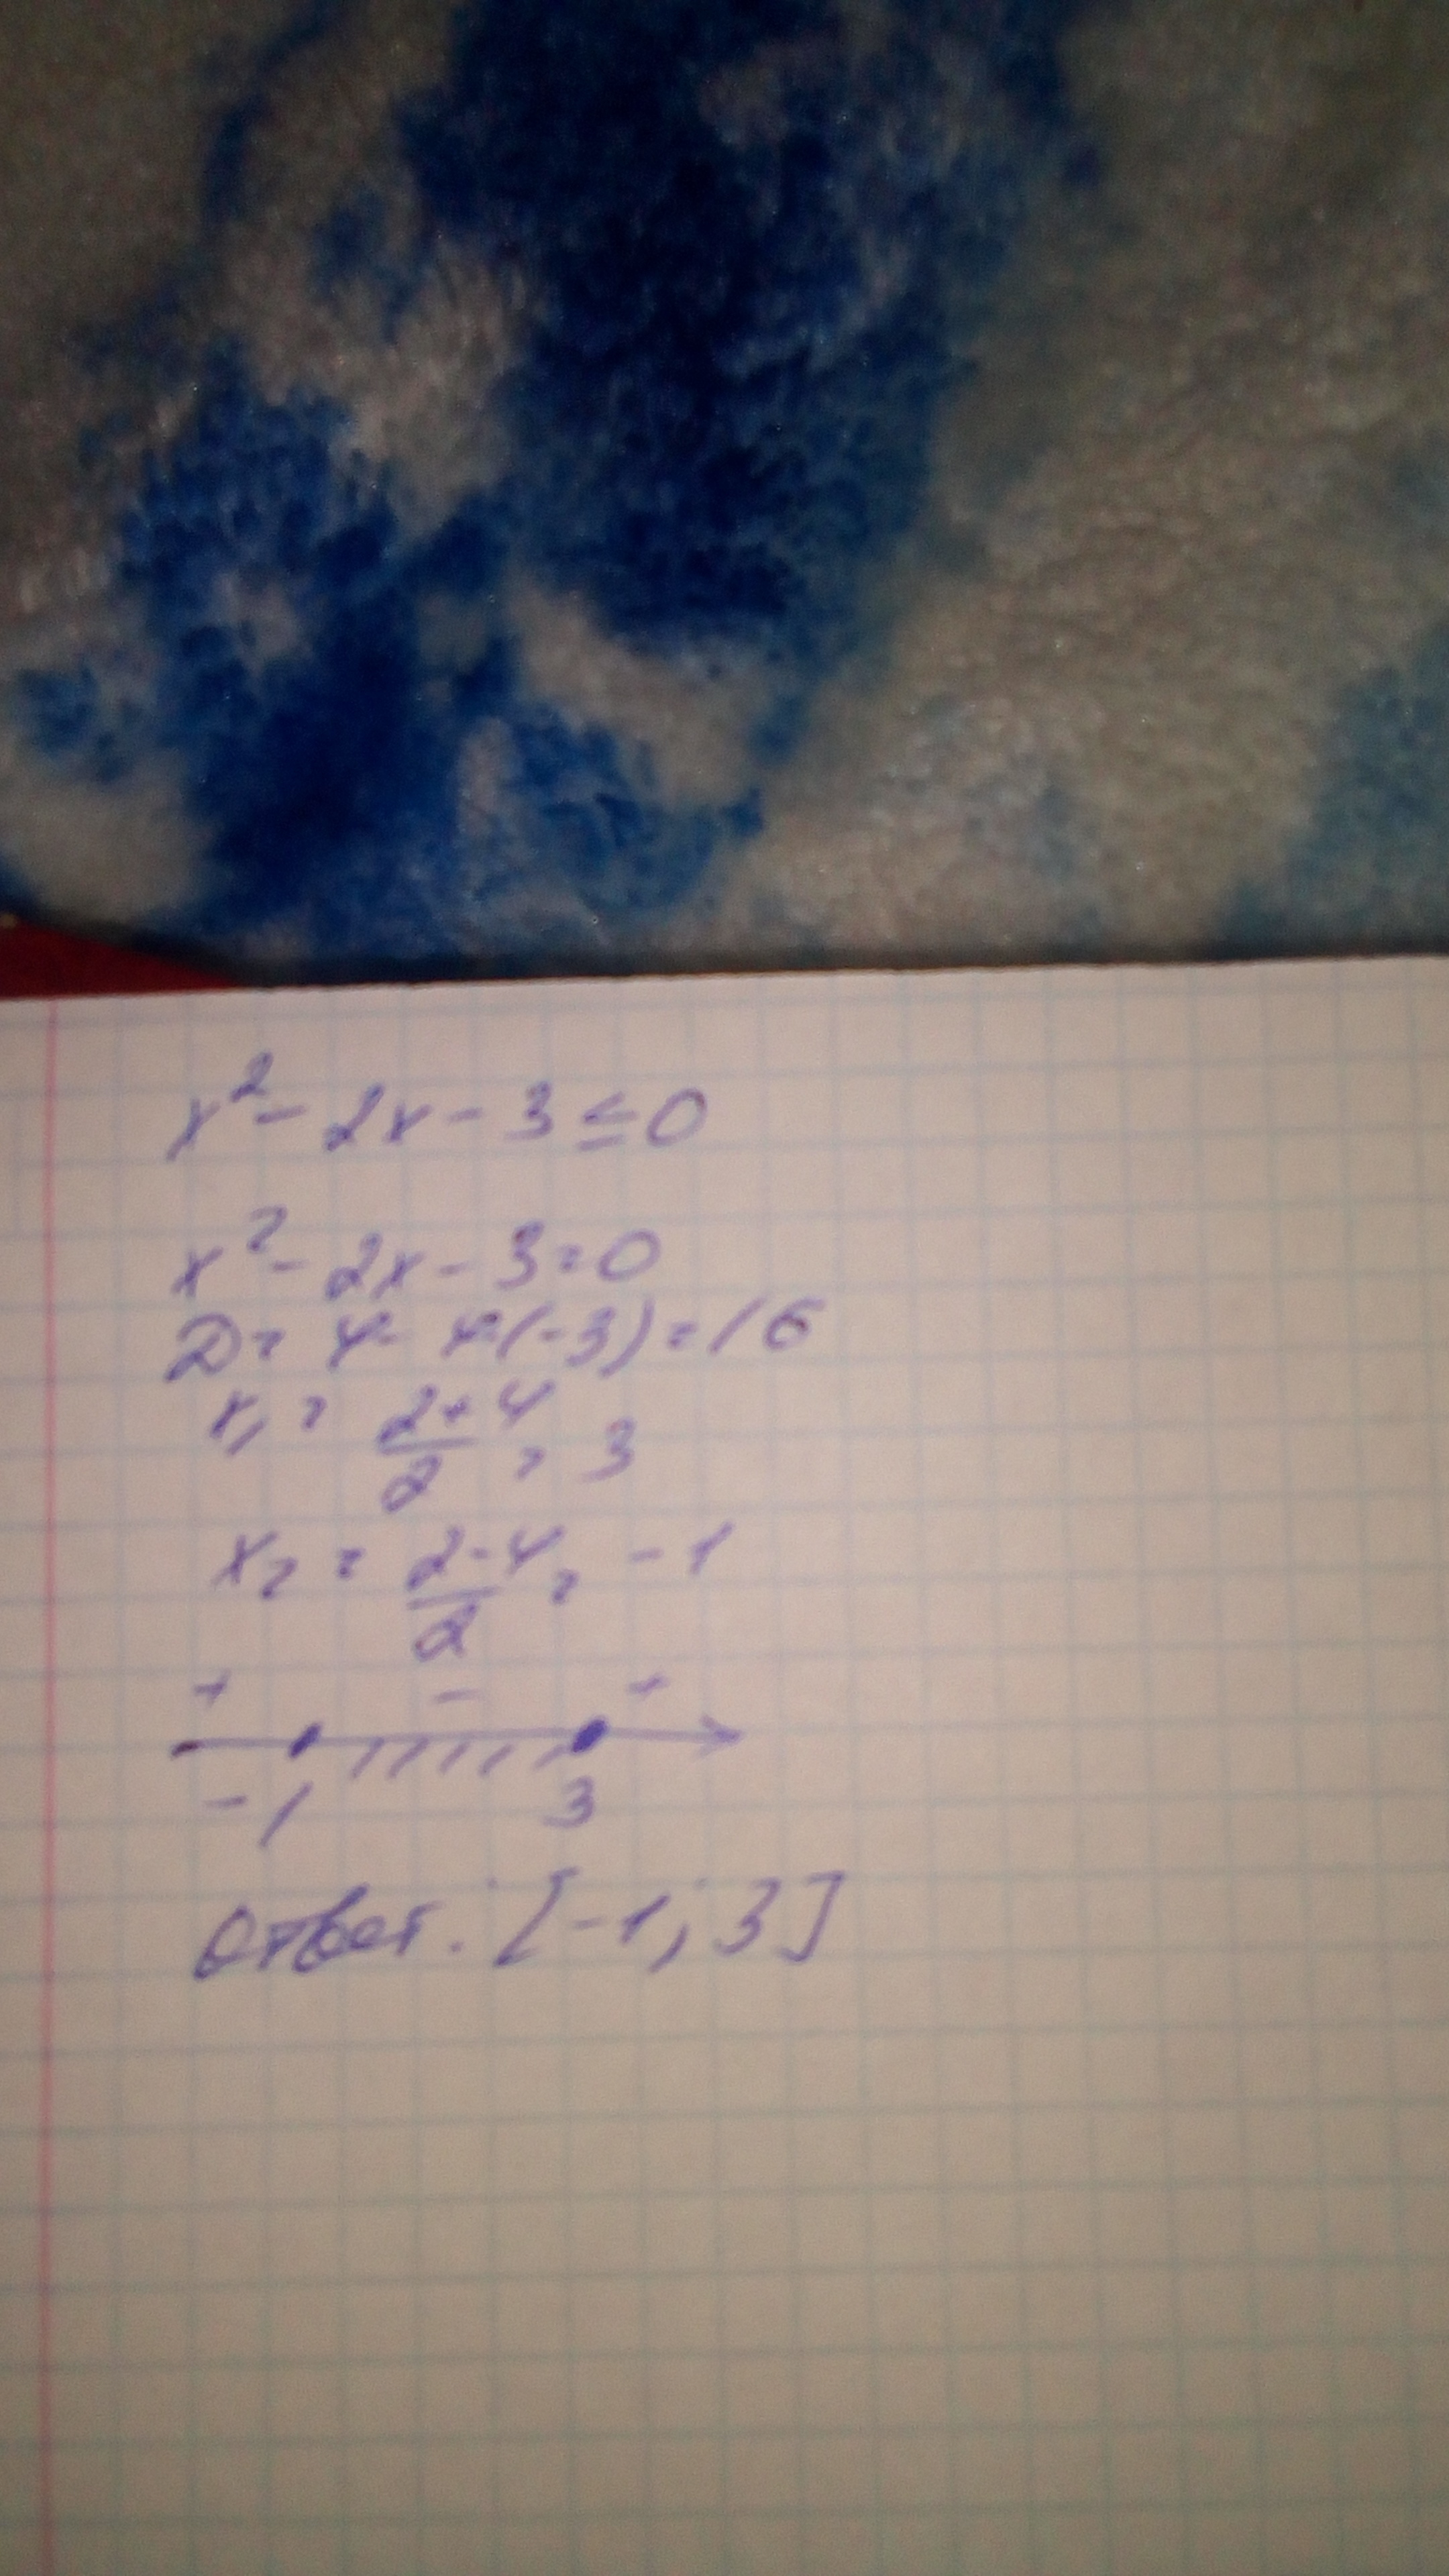 x² - 2x - 3 ≤ 0
x² - 2x - 3 = 0
D = 4 - 4·(-3) = 16
x₁ = (2+4)/2 = 3
x₂ = (2-4)/2 = -1
+ - +
-1 3
Ответ: [-1; 3]